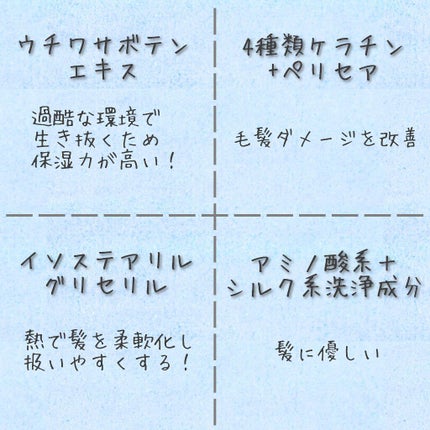 ウチワサボテン
エキス
過酷な環境で
生き抜くため
保湿力が高い！
4種類ケラチン
+ペリセア
毛髪ダメージを改善
イソステアリル
グリセリル
熱で髪を柔軟化し
扱いやすくする！
アミノ酸系+
シルク系洗浄成分
髪に優しい